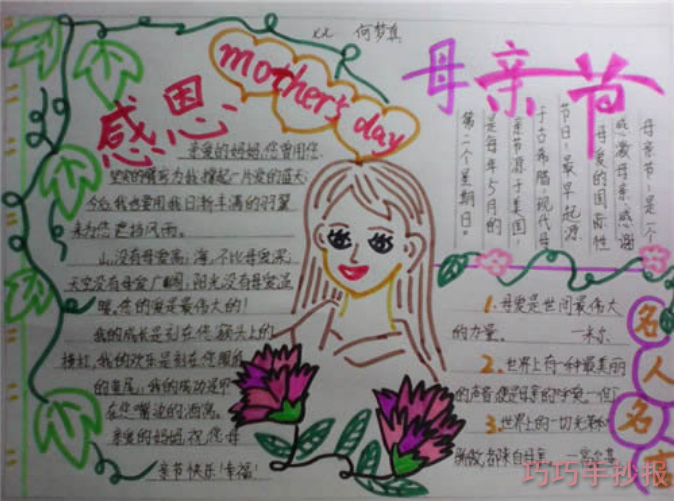 xx 何梦真
mother's day
感恩
母亲节
亲爱的妈妈,您曾用您
坚实的臂弯为我撑起一片爱的蓝天;
今后,我也要用我日渐丰满的羽翼
来为您遮挡风雨。
山,没有母爱高;海,不比母爱深,
天空没有母爱广阔;阳光没有母爱温
暖。您的爱是最伟大的!
我的成长是刻在您额头上的
横杠,我的欢乐是刻在您眼角
的鱼尾,我的成功
在您嘴边的酒窝。
亲爱的妈妈祝您母
亲节快乐!幸福!
母亲节,是一个
感激母亲、感谢
母爱的国际性
节日。最早起源
于古希腊;现代母
亲节源于美国,
是每年5月的
第二个星期日。
名人名言
1.母爱是世间最伟大
的力量。 —米尔
2.世界上有一种最美丽
的声音,便是母亲的呼唤。—但丁
3.世界上的一切光荣和
骄傲,都来自母亲。—高尔基
巧巧手抄报